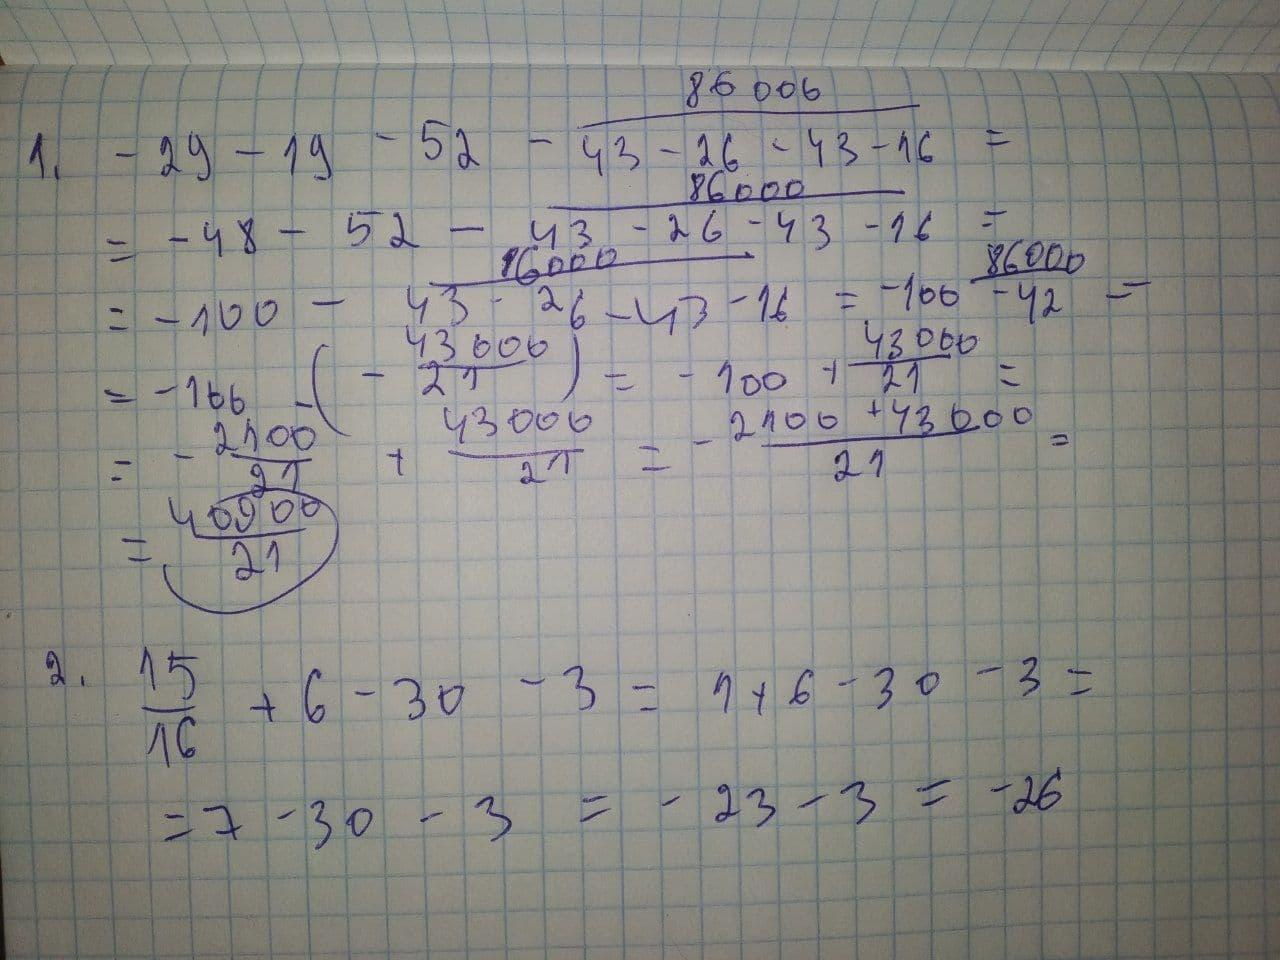 1. -29 - 19 - 52 - 86000/(43 - 26 - 43 - 16) =
= -48 - 52 - 86000/(43 - 26 - 43 - 16) =
= -100 - 86000/(43 - 26 - 43 - 16) = -100 - 86000/-42 =
= -100 - (- 43000/21) = -100 + 43000/21 =
= - 2100/21 + 43000/21 = (-2100 + 43000)/21 =
= 40900/21
2. 15/16 + 6 - 30 - 3 = 1 + 6 - 30 - 3 =
= 7 - 30 - 3 = - 23 - 3 = -26